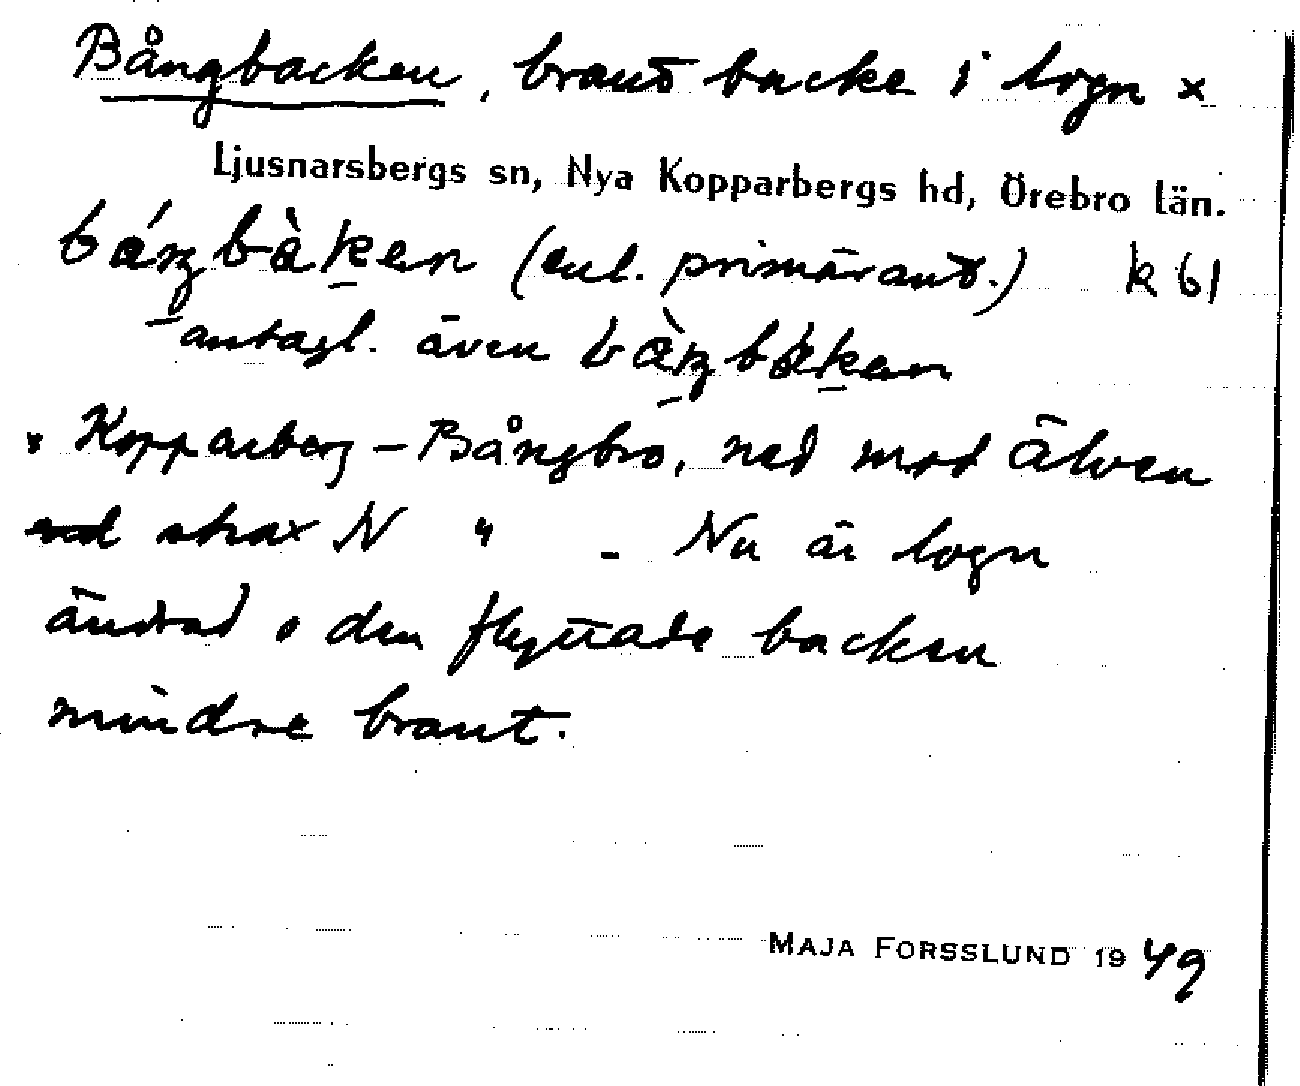 Bångbacken, brant backe i lvgn ×
Ljusnarsbergs sn, Nya Kopparbergs hd, Örebro län.
(enl. primäruppt.) k 61
antagl. även
× Kopparberg – Bångbro, ned mot älven
strax N " – Nu är lvgn
ändrad o den flyttade backen
mindre brant.
MAJA FORSSLUND 1949